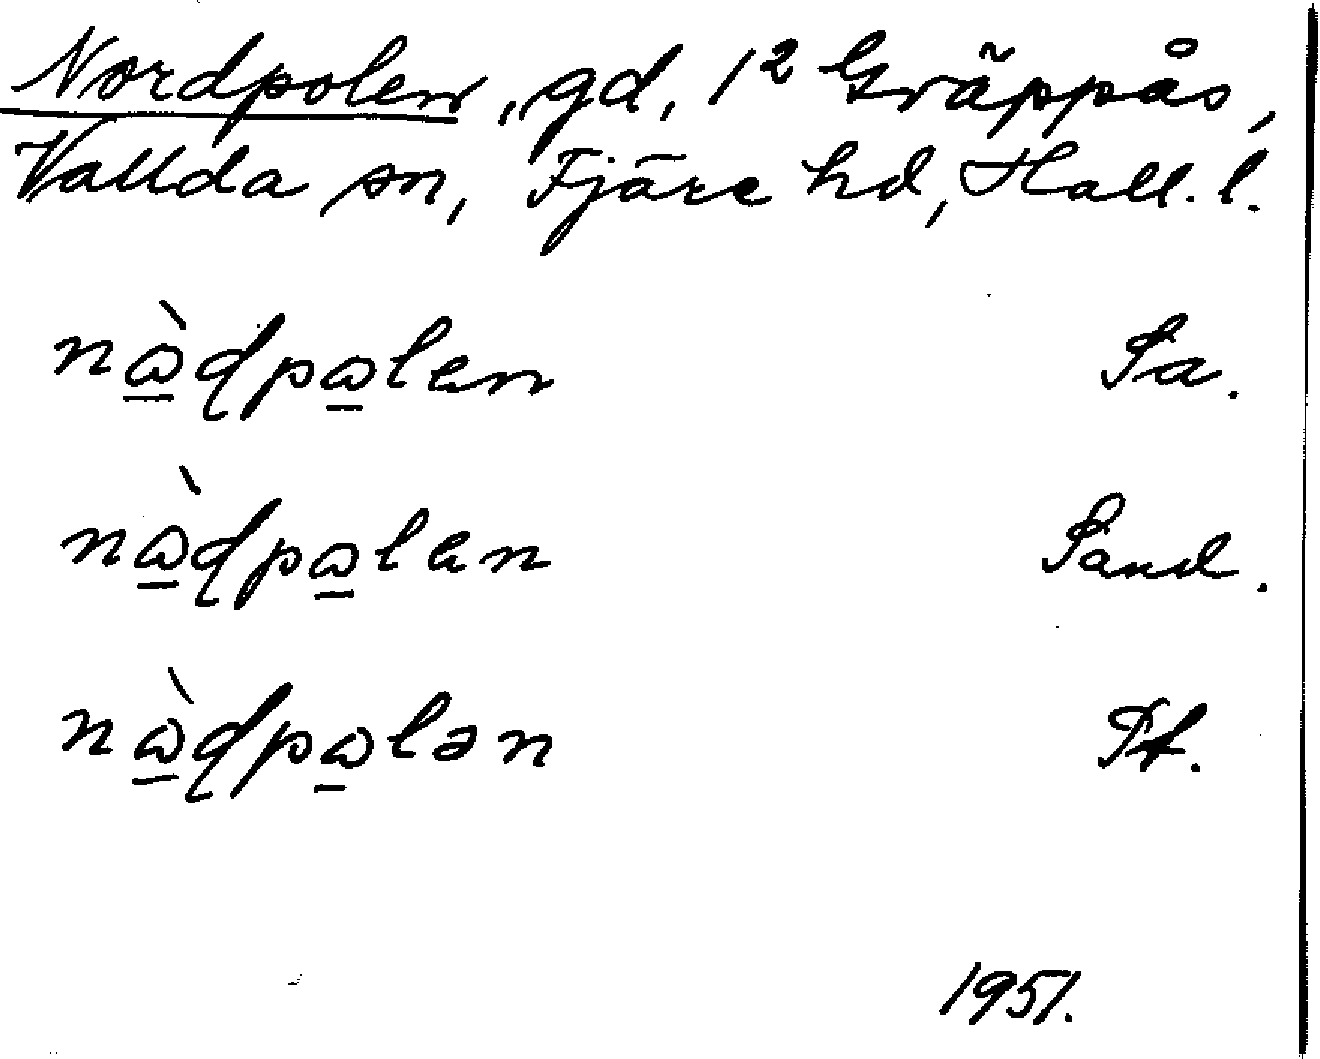 Nordpolen, gd, 1² Gräppås,
Vallda sn, Fjäre hd, Hall. l.
nɷ̲̀ɖpɷ̲len Sa.
nɷ̲̀ɖpɷ̲len Sand.
nɷ̲̀ɖpɷ̲lən Pt.
1951.